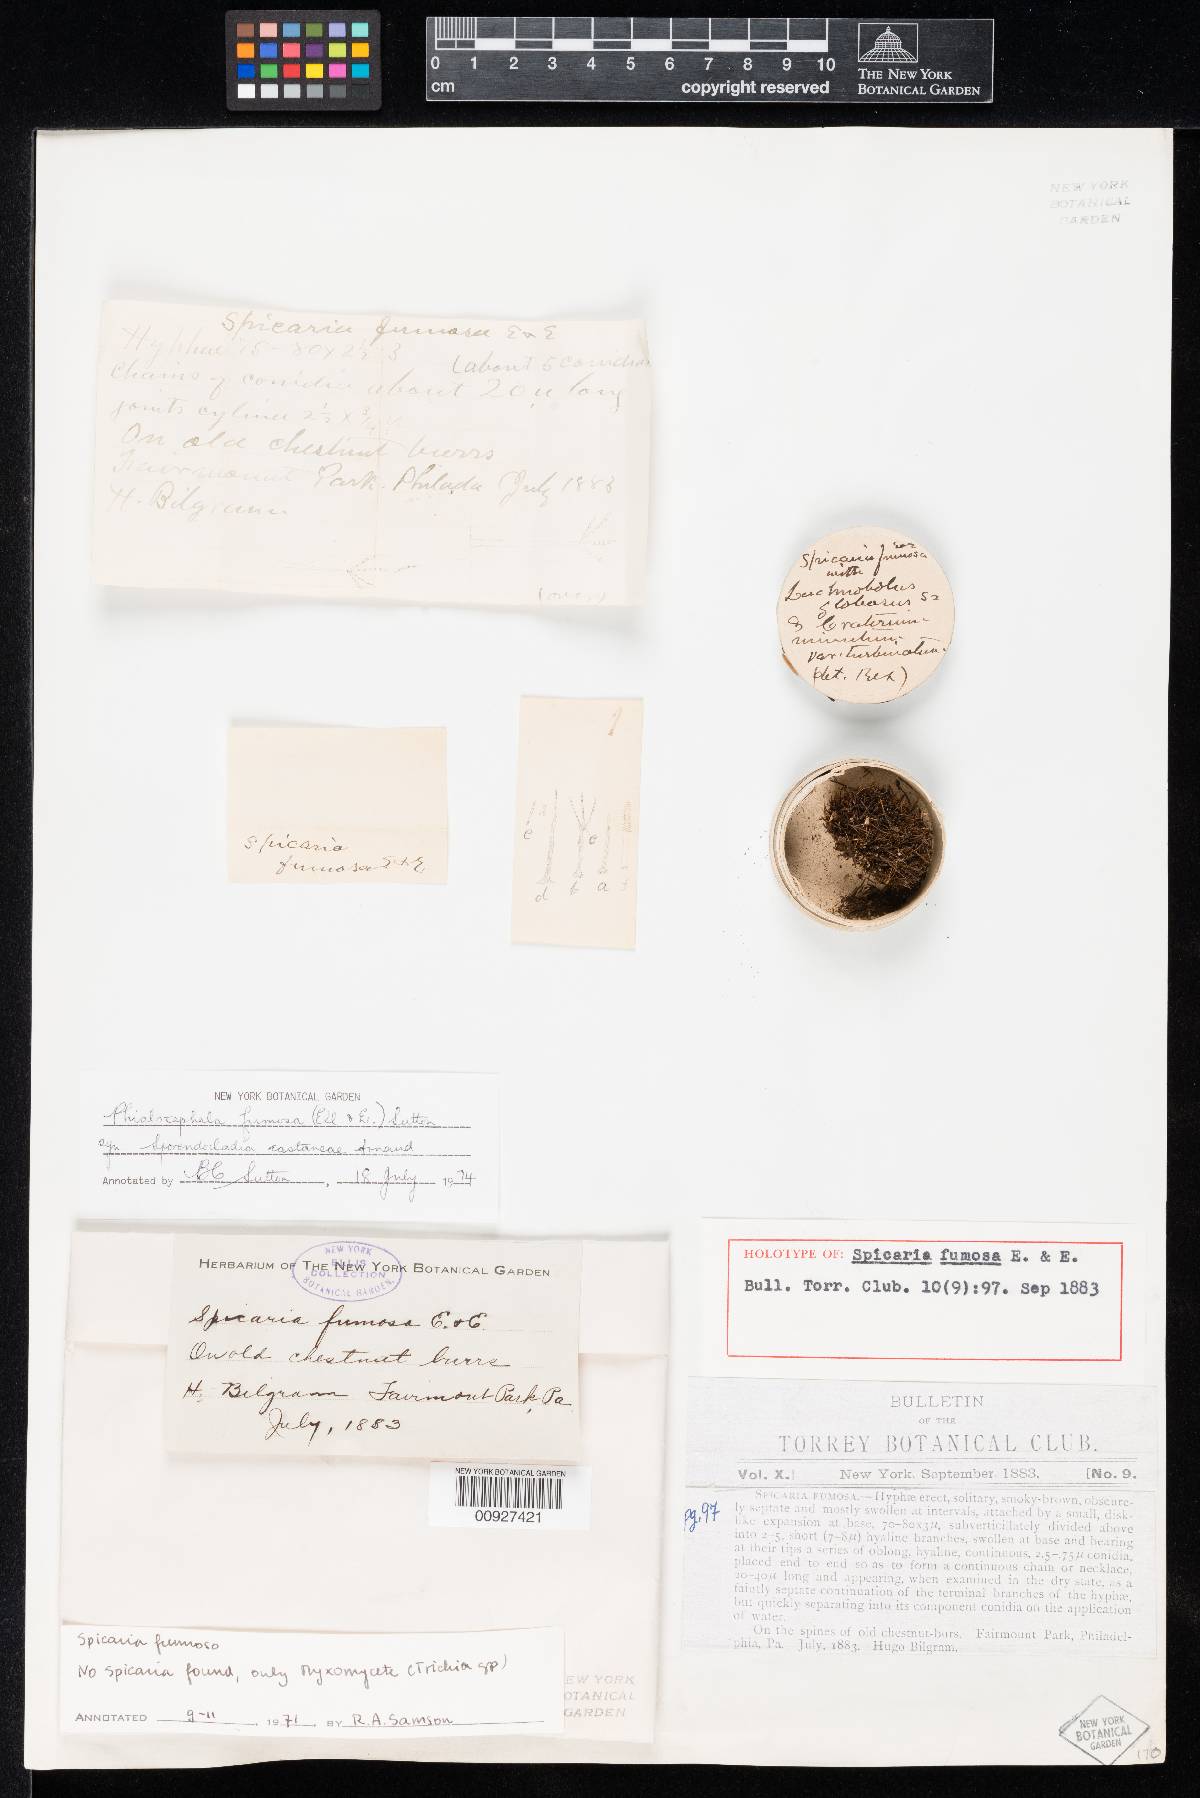 0 1 2 3 4 5 6 7 8 9 10
cm
copyright reserved
THE NEW YORK
BOTANICAL GARDEN
NEW YORK
BOTANICAL
GARDEN
Spicaria fumosa E & E
Hyphae 75-80 x 2½-3
(about 5 conidia
Chains of conidia about 20 u long
joints cylinder 2½ x ¾
On old chestnut burrs
Fairmount Park. Philada July 1883
H. Bilgram
(over)
Spicaria fumosa
with
Lachnobolus
globosus Sz
& Craterium
minutum
var. turbinatum.
(det. Rex)
Spicaria
fumosa E & E
c
e
d
b
a
NEW YORK BOTANICAL GARDEN
Phialocephala fumosa (Ell & Ev.) Sutton
syn Sporendocladia castaneae Arnaud
Annotated by BC Sutton, 18 July 1974
HERBARIUM OF THE NEW YORK BOTANICAL GARDEN
NEW YORK
ELLIS
COLLECTION
BOTANICAL GARDEN.
Spicaria fumosa E. & E.
On old chestnut burrs
H. Bilgram Fairmount Park, Pa
July, 1883
NEW YORK BOTANICAL GARDEN
00927421
HOLOTYPE OF: Spicaria fumosa E. & E.
Bull. Torr. Club. 10(9):97. Sep 1883
BULLETIN
OF THE
TORREY BOTANICAL CLUB.
Vol. X.] New York, September, 1883. [No. 9.
pg. 97
SPICARIA FUMOSA.—Hyphæ erect, solitary, smoky-brown, obscure-
ly septate and mostly swollen at intervals, attached by a small, disk-
like expansion at base, 70-80x3µ, subverticillately divided above
into 2-5, short (7-8µ) hyaline branches, swollen at base and bearing
at their tips a series of oblong, hyaline, continuous, 2.5-.75µ conidia,
placed end to end so as to form a continuous chain or necklace,
20-40µ long and appearing, when examined in the dry state, as a
faintly septate continuation of the terminal branches of the hyphæ,
but quickly separating into its component conidia on the application
of water.
On the spines of old chestnut-burs. Fairmount Park, Philadel-
phia, Pa. July, 1883. Hugo Bilgram.
Spicaria fumosa
No Spicaria found, only Myxomycete (Trichia sp)
ANNOTATED 9-11, 1971, BY R.A. Samson
NEW YORK
BOTANICAL
GARDEN
NEW YORK
BOTANICAL
GARDEN
170